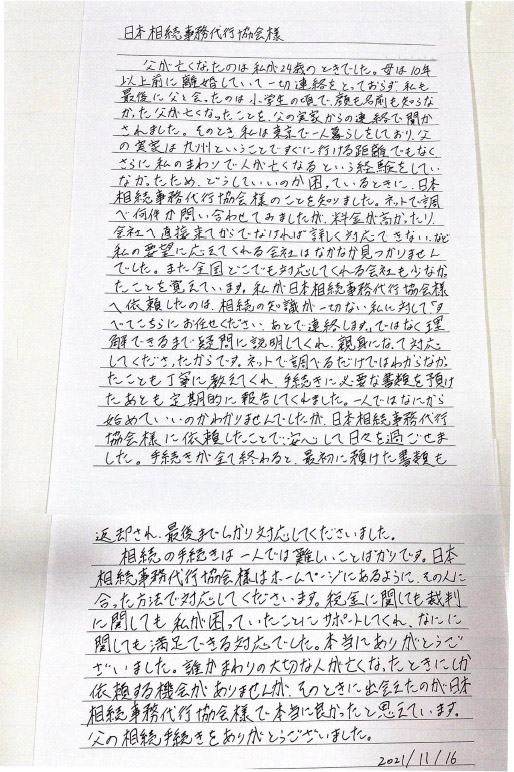 日本相続事務代行協会様
父が亡くなったのは私が24歳のときでした。母は10年
以上前に離婚していて一切連絡をとっておらず、私も
最後に父と会ったのは小学生の頃で、顔も名前も知らな
かった父が亡くなったことを、父の実家からの連絡で聞か
されました。そのとき私は東京で一人暮らしをしており、父
の実家は九州ということですぐに行ける距離でもなく
さらに私のまわりで人が亡くなるという経験をしてい
なかったため、どうしていいのか困っているときに、日本
相続事務代行協会様のことを知りました。ネットで調
べ何件か問い合わせてみましたが、料金が高かったり
会社へ直接来てからでなければ詳しく対応できない、など
私の要望に応えてくれる会社はなかなか見つかりません
でした。また全国どこでも対応してくれる会社も少なか
たことを覚えています。私が日本相続事務代行協会様
へ依頼したのは、相続の知識が一切ない私に対して「す
べてこちらにお任せください、あとで連絡します。」ではなく理
解できるまで疑問に説明してくれ、親身になって対応
してくださったからです。ネットで調べるだけではわからなか
ったことも丁寧に教えてくれ、手続きに必要な書類を預け
たあとも定期的に報告してくれました。一人ではなにから
始めていいのかわかりませんでしたが、日本相続事務代行
協会様に依頼したことで安心して日々を過ごせま
した。手続きが全て終わると、最初に預けた書類も
返却され、最後までしっかり対応してくださいました。
相続の手続きは一人では難しいことばかりです。日本
相続事務代行協会様はホームページにあるように、その人に
合った方法で対応してくださいます。税金に関しても裁判
に関しても私が困っていたことにサポートしてくれ、なにに
関しても満足できる対応でした。本当にありがとうご
ざいました。誰かまわりの大切な人が亡くなったときにしか
依頼する機会がありませんが、そのときに出会えたのが日本
相続事務代行協会様で本当に良かったと思えています。
父の相続手続きをありがとうございました。
2021/11/16